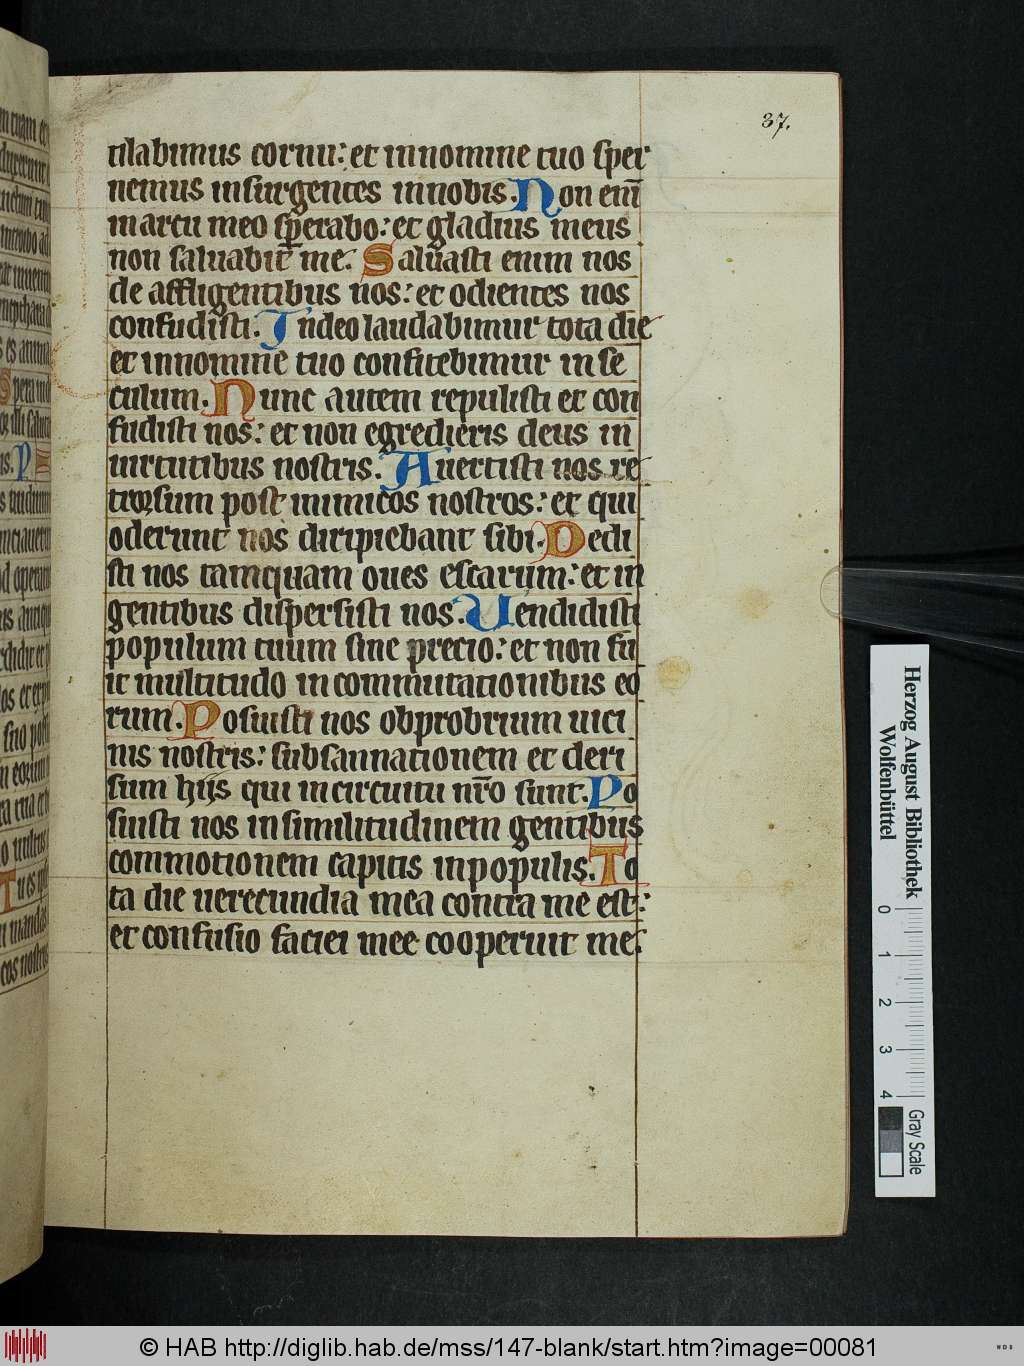 37.
tilabimus cornu: et in nomine tuo sper
nemus insurgentes in nobis. Non enī
in arcu meo sꝑabo: et gladius meus
non saluabit me. Saluasti enim nos
de affligentibus nos: et odientes nos
confudisti. In deo laudabimur tota die
et in nomine tuo confitebimur in se
culum. Nunc autem repulisti et con
fudisti nos: et non egredieris deus in
uirtutibus nostris. Auertisti nos re
trorsum post inimicos nostros: et qui
oderunt nos diripiebant sibi. Dedi
sti nos tamquam oues escarum: et in
gentibus dispersisti nos. Uendidisti
populum tuum sine precio: et non fu
it multitudo in commutationibus eo
rum. Posuisti nos obprobrium uici
nis nostris: subsannationem et deri
sum hijs qui in circuitu nr̄o sunt. Po
suisti nos in similitudinem gentibus
commotionem capitis in populis. To
ta die uerecundia mea contra me est:
et confusio faciei mee cooperuit me.
Herzog August Bibliothek
Wolfenbüttel
0 1 2 3 4
Gray Scale
© HAB http://diglib.hab.de/mss/147-blank/start.htm?image=00081